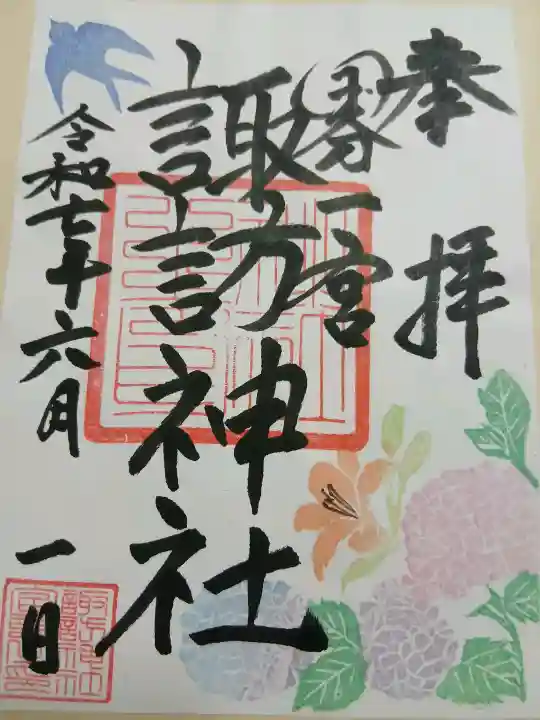 奉拝
一宮
諏訪神社
令和七年六月
一日